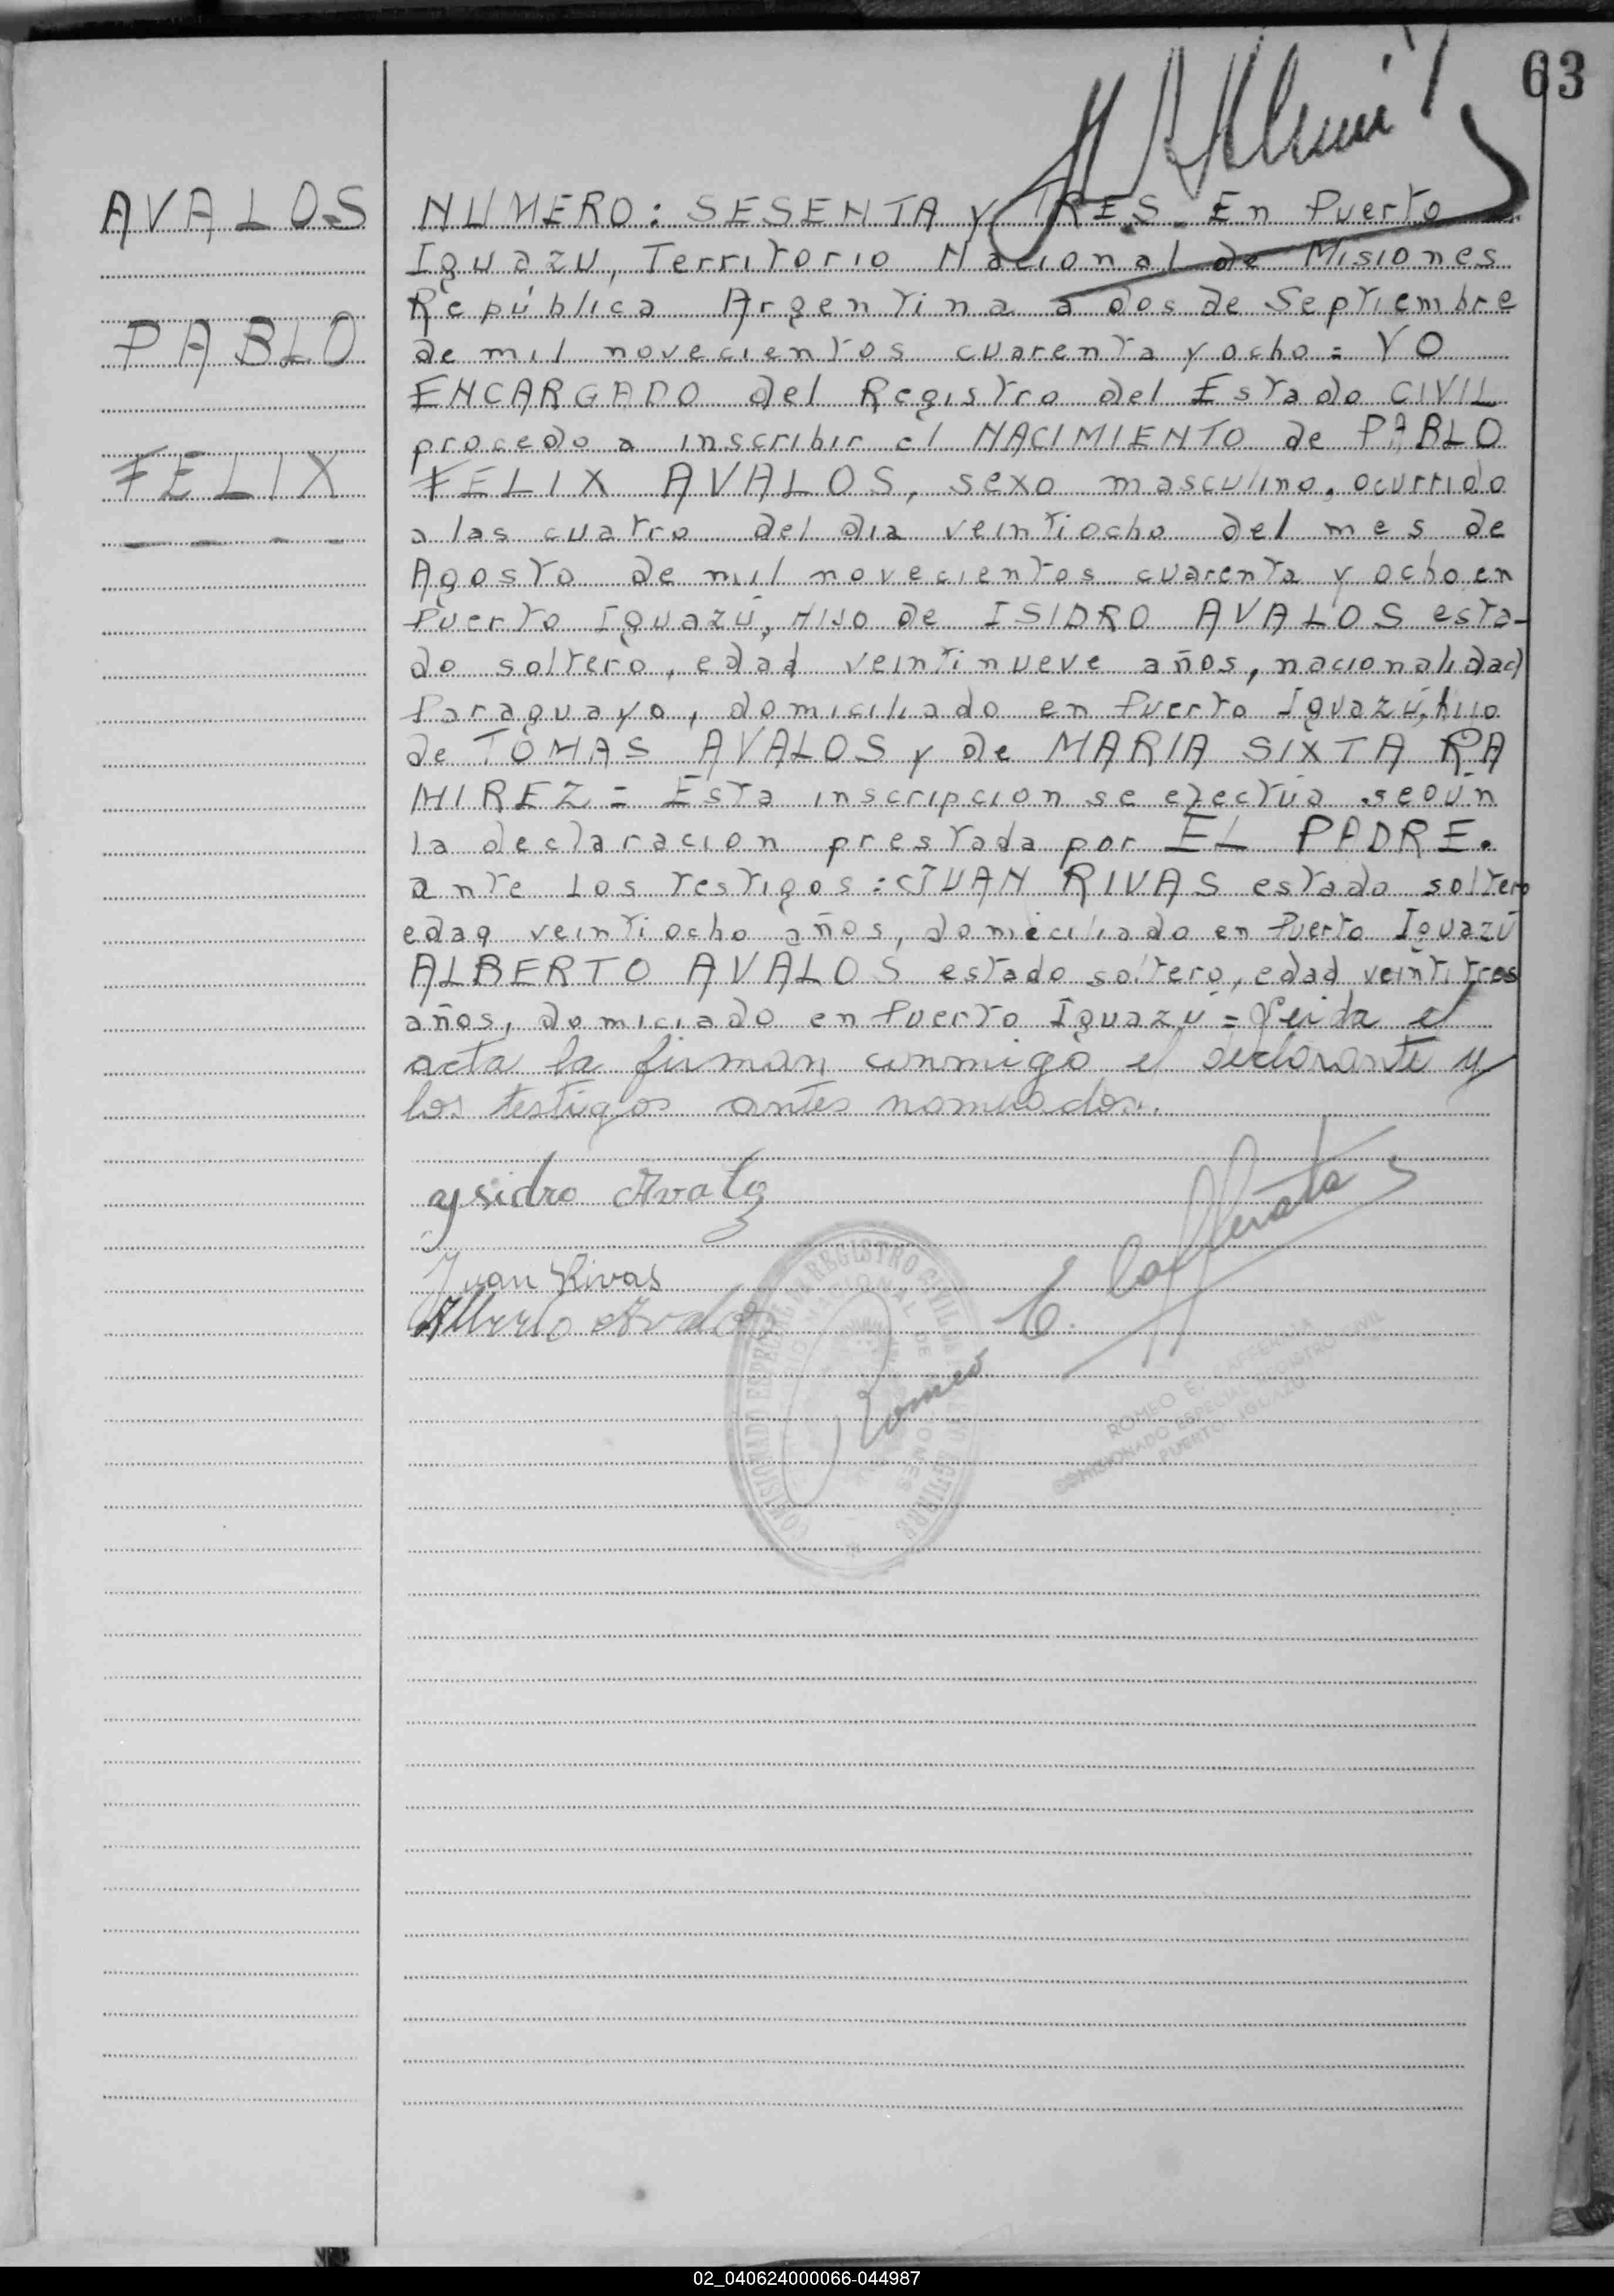 63
AVALOS
PABLO
FELIX
NUMERO: SESENTA y TRES. En Puerto
Iguazu, Territorio Nacional de Misiones
República Argentina a dos de Septiembre
de mil novecientos cuarenta y ocho = YO
ENCARGADO del Registro del Estado CIVIL
procedo a inscribir el NACIMIENTO de PABLO
FELIX AVALOS, sexo masculino, ocurrido
a las cuatro del dia veintiocho del mes de
Agosto de mil novecientos cuarenta y ocho en
Puerto Iguazú, HIJO de ISIDRO AVALOS esta-
do soltero, edad veintinueve años, nacionalidad
Paraguayo, domiciliado en Puerto Iguazú, hijo
de TOMAS AVALOS y de MARIA SIXTA RA
MIREZ = Esta inscripcion se efectúa según
la declaracion prestada por EL PADRE.
ante los testigos: JUAN RIVAS estado soltero
edad veintiocho años, domiciliado en Puerto Iguazú
ALBERTO AVALOS estado soltero, edad veintitres
años, domiciado en Puerto Iguazú = Leida el
acta la firman conmigo el declarante y
los testigos antes nombrados.
Ysidro Avalos
Juan Rivas
Alberto Avalos
Romeo E. Cafferata
COMISIONADO ESPECIAL DE REGISTRO CIVIL
ROMEO E. CAFFERATA
COMISIONADO ESPECIAL REGISTRO CIVIL
PUERTO IGUAZU
02_040624000066-044987